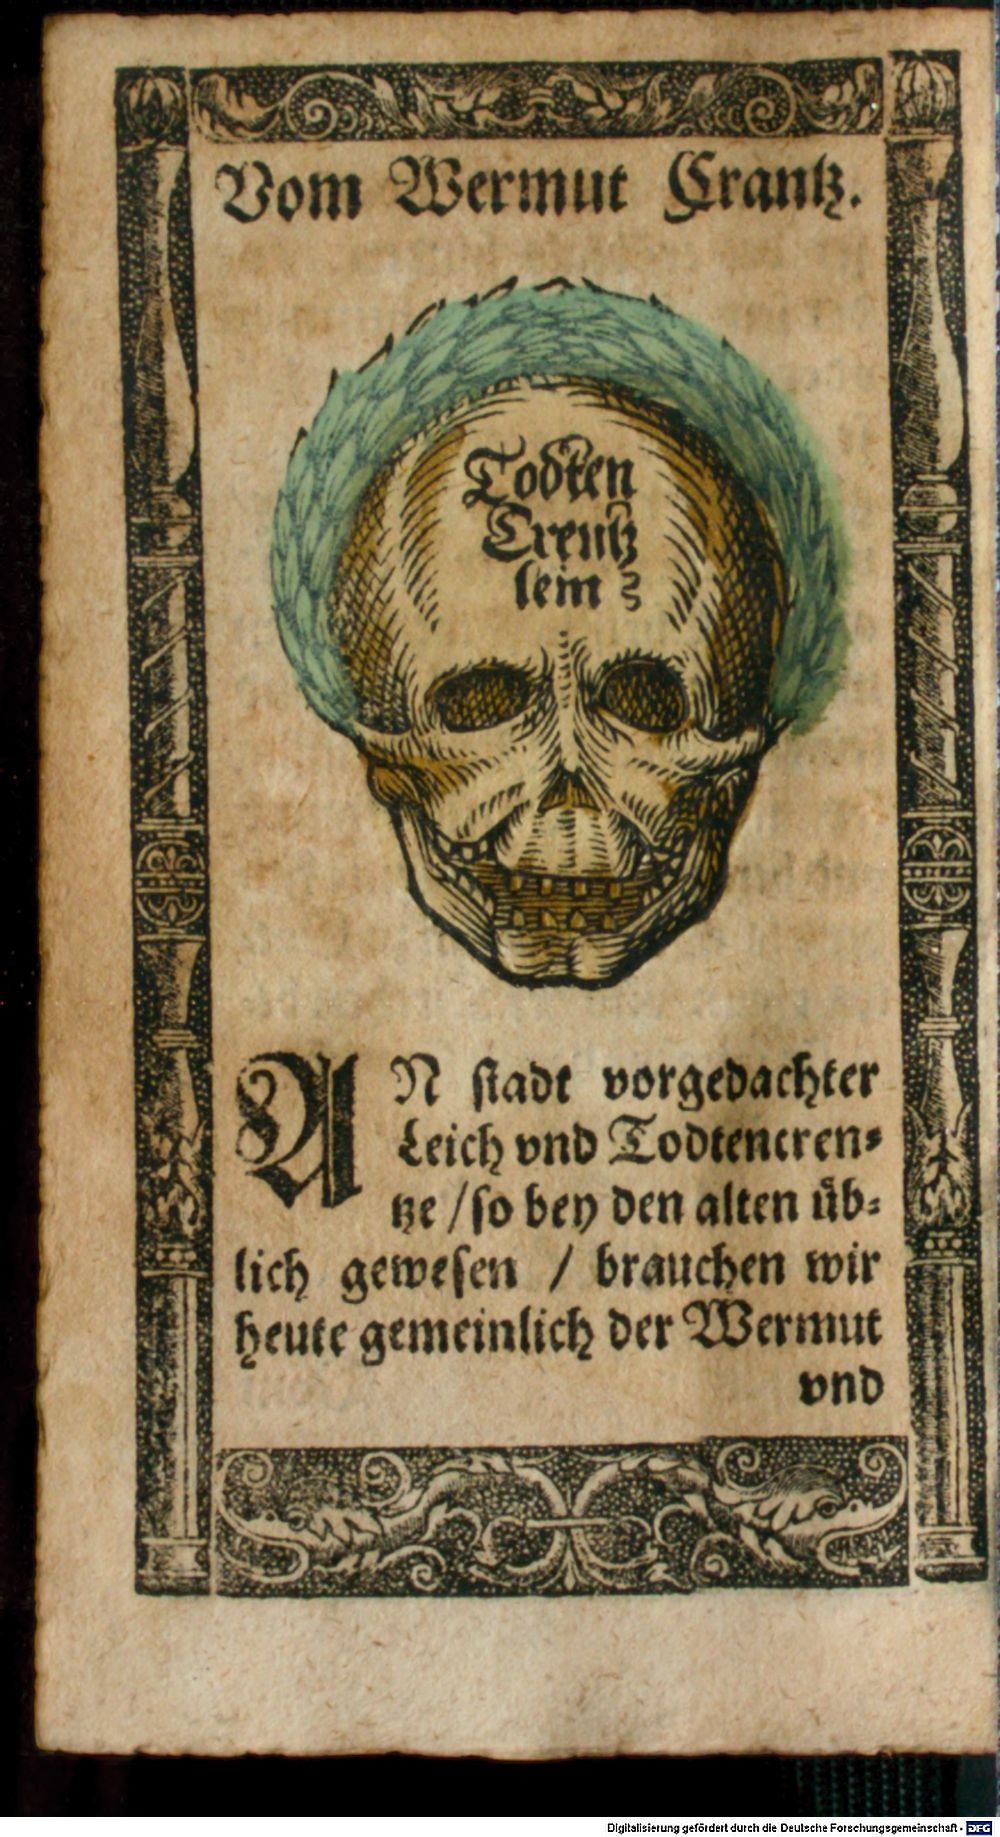 Vom Wermut Crantz.
Todten
Crentz
lein
AN stadt vorgedachter
Leich vnd Todtencren⸗
tze / so bey den alten üb⸗
lich gewesen / brauchen wir
heute gemeinlich der Wermut
vnd
Digitalisierung gefördert durch die Deutsche Forschungsgemeinschaft - DFG